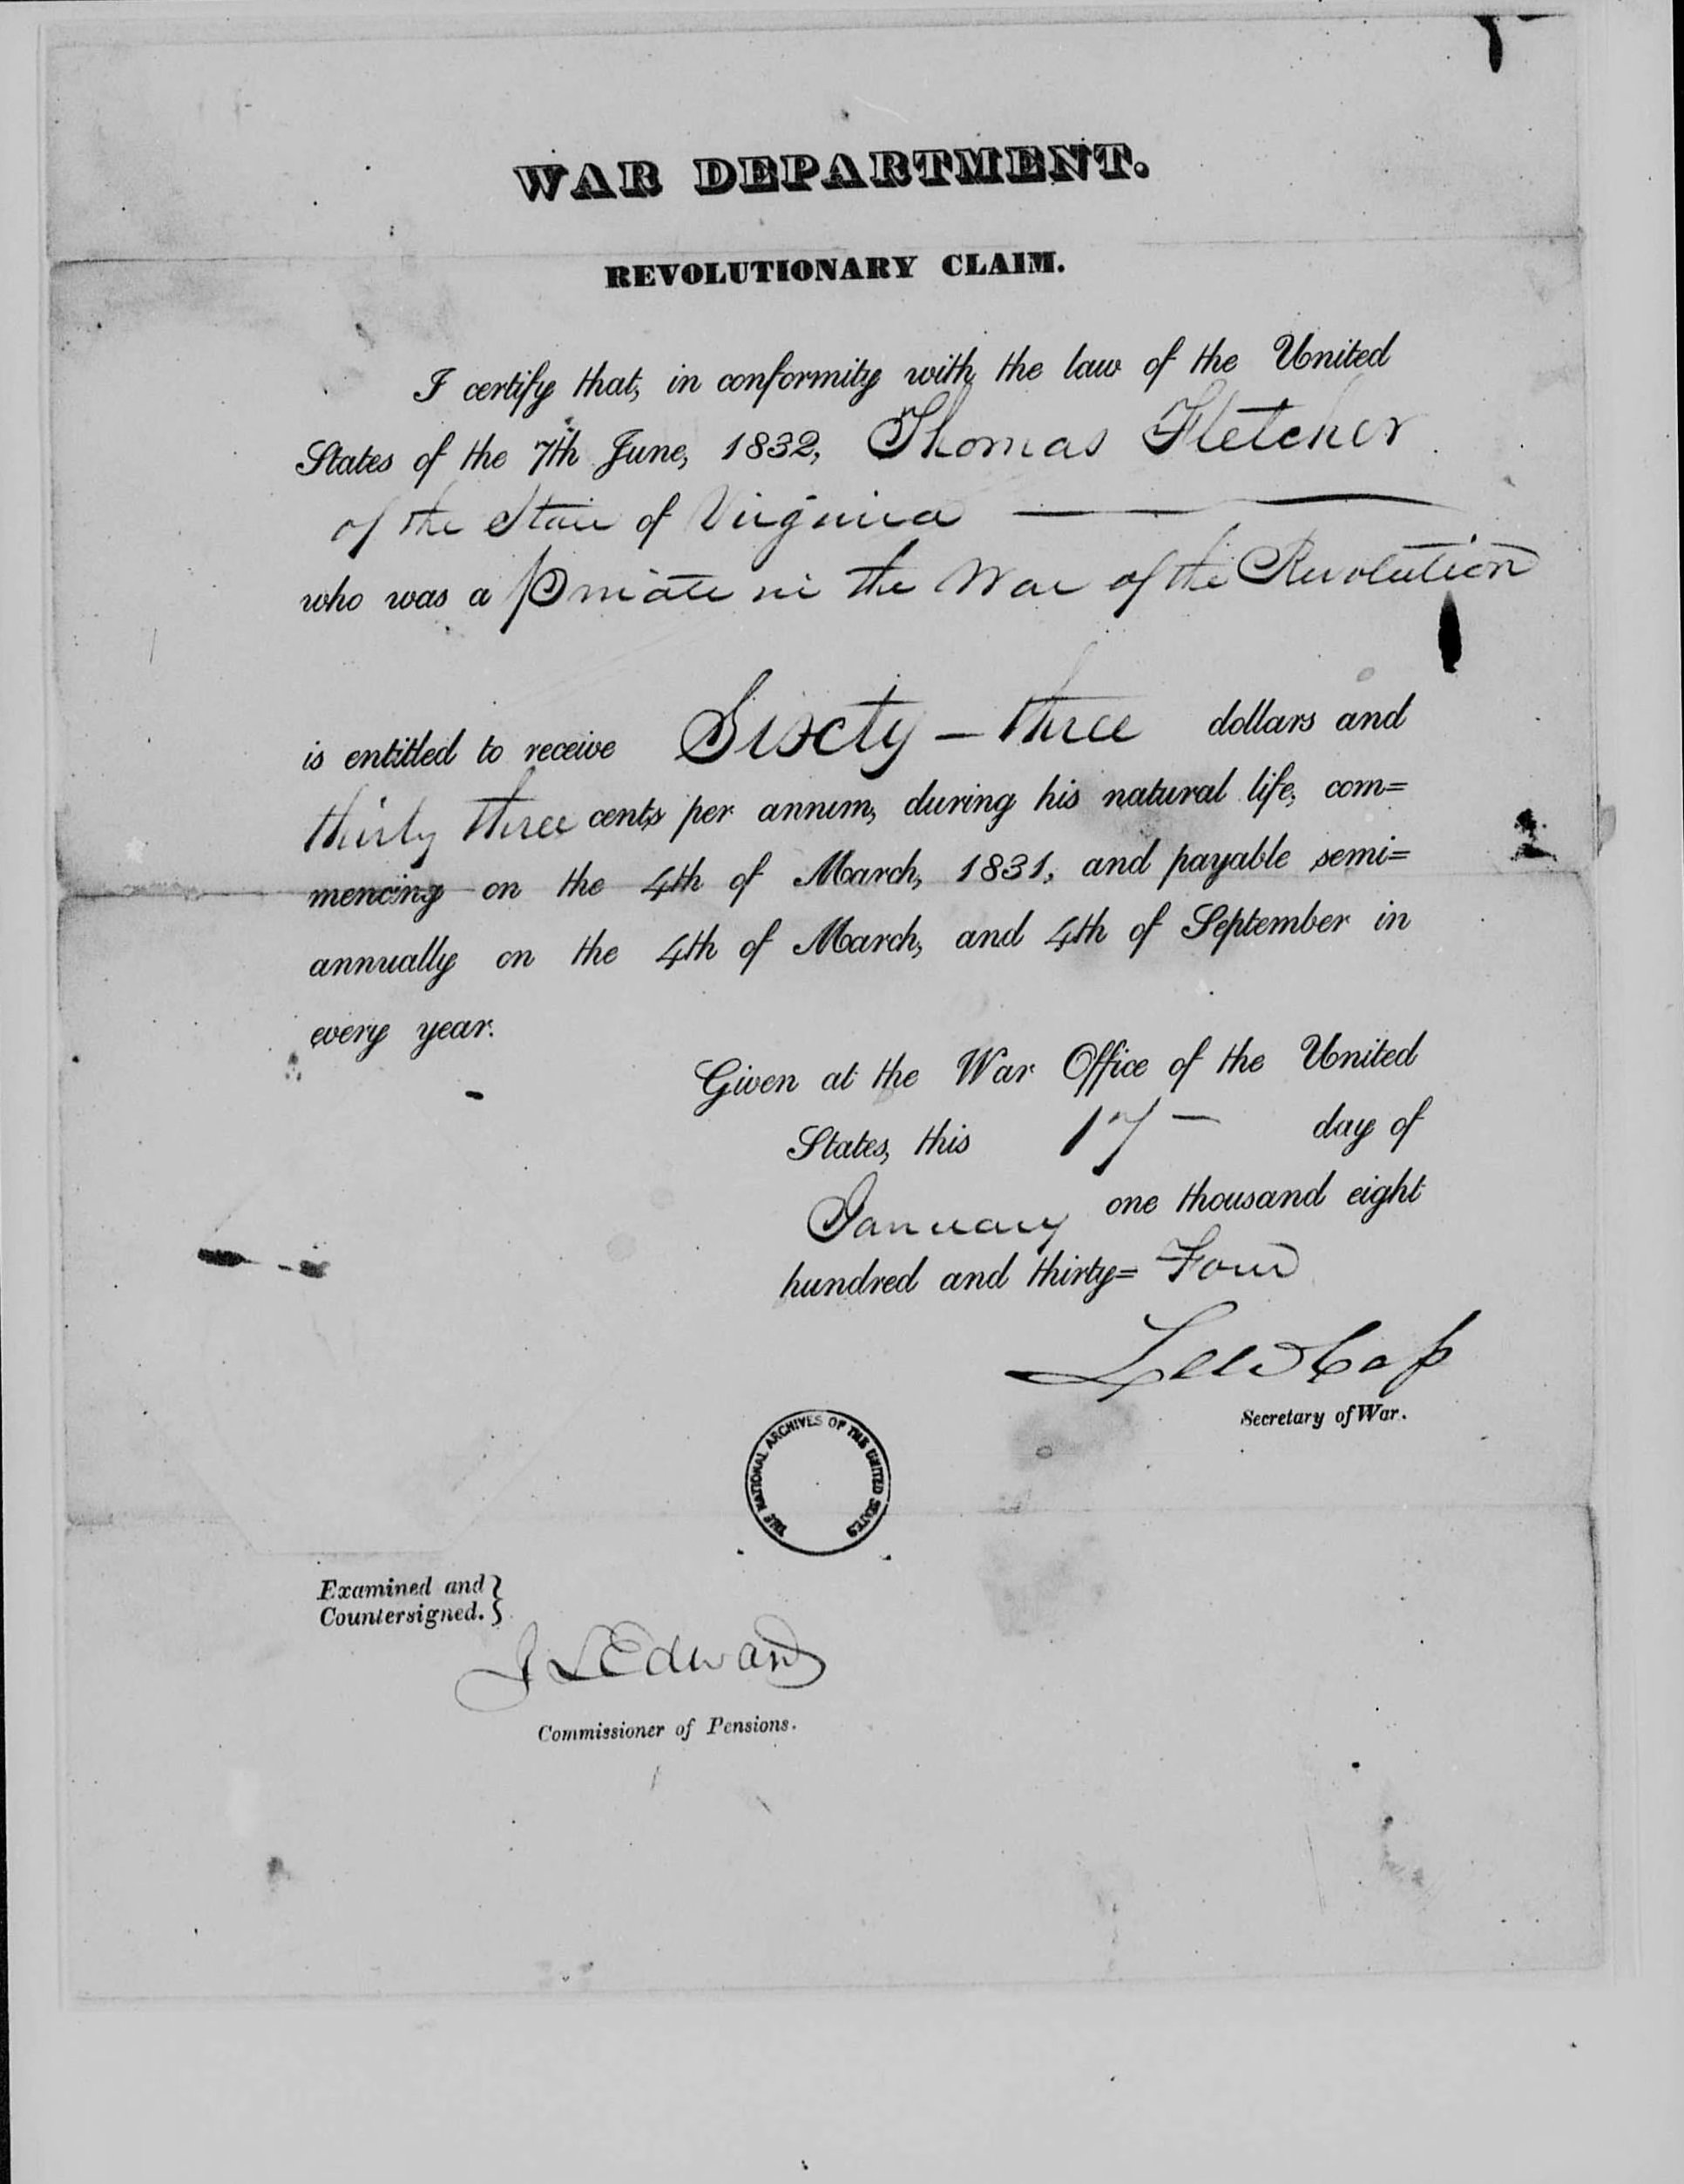 WAR DEPARTMENT.
REVOLUTIONARY CLAIM.
I certify that, in conformity with the law of the United
States of the 7th June, 1832, Thomas Fletcher
of the State of Virginia
who was a Private in the War of the Revolution
is entitled to receive Sixty-three dollars and
thirty three cents per annum, during his natural life, com=
mencing on the 4th of March, 1831, and payable semi=
annually on the 4th of March, and 4th of September in
every year.
Given at the War Office of the United
States, this 17 day of
January one thousand eight
hundred and thirty= Four
Lew Cass
Secretary of War.
THE NATIONAL ARCHIVES OF THE UNITED STATES
Examined and
Countersigned.
J L Edwards
Commissioner of Pensions.